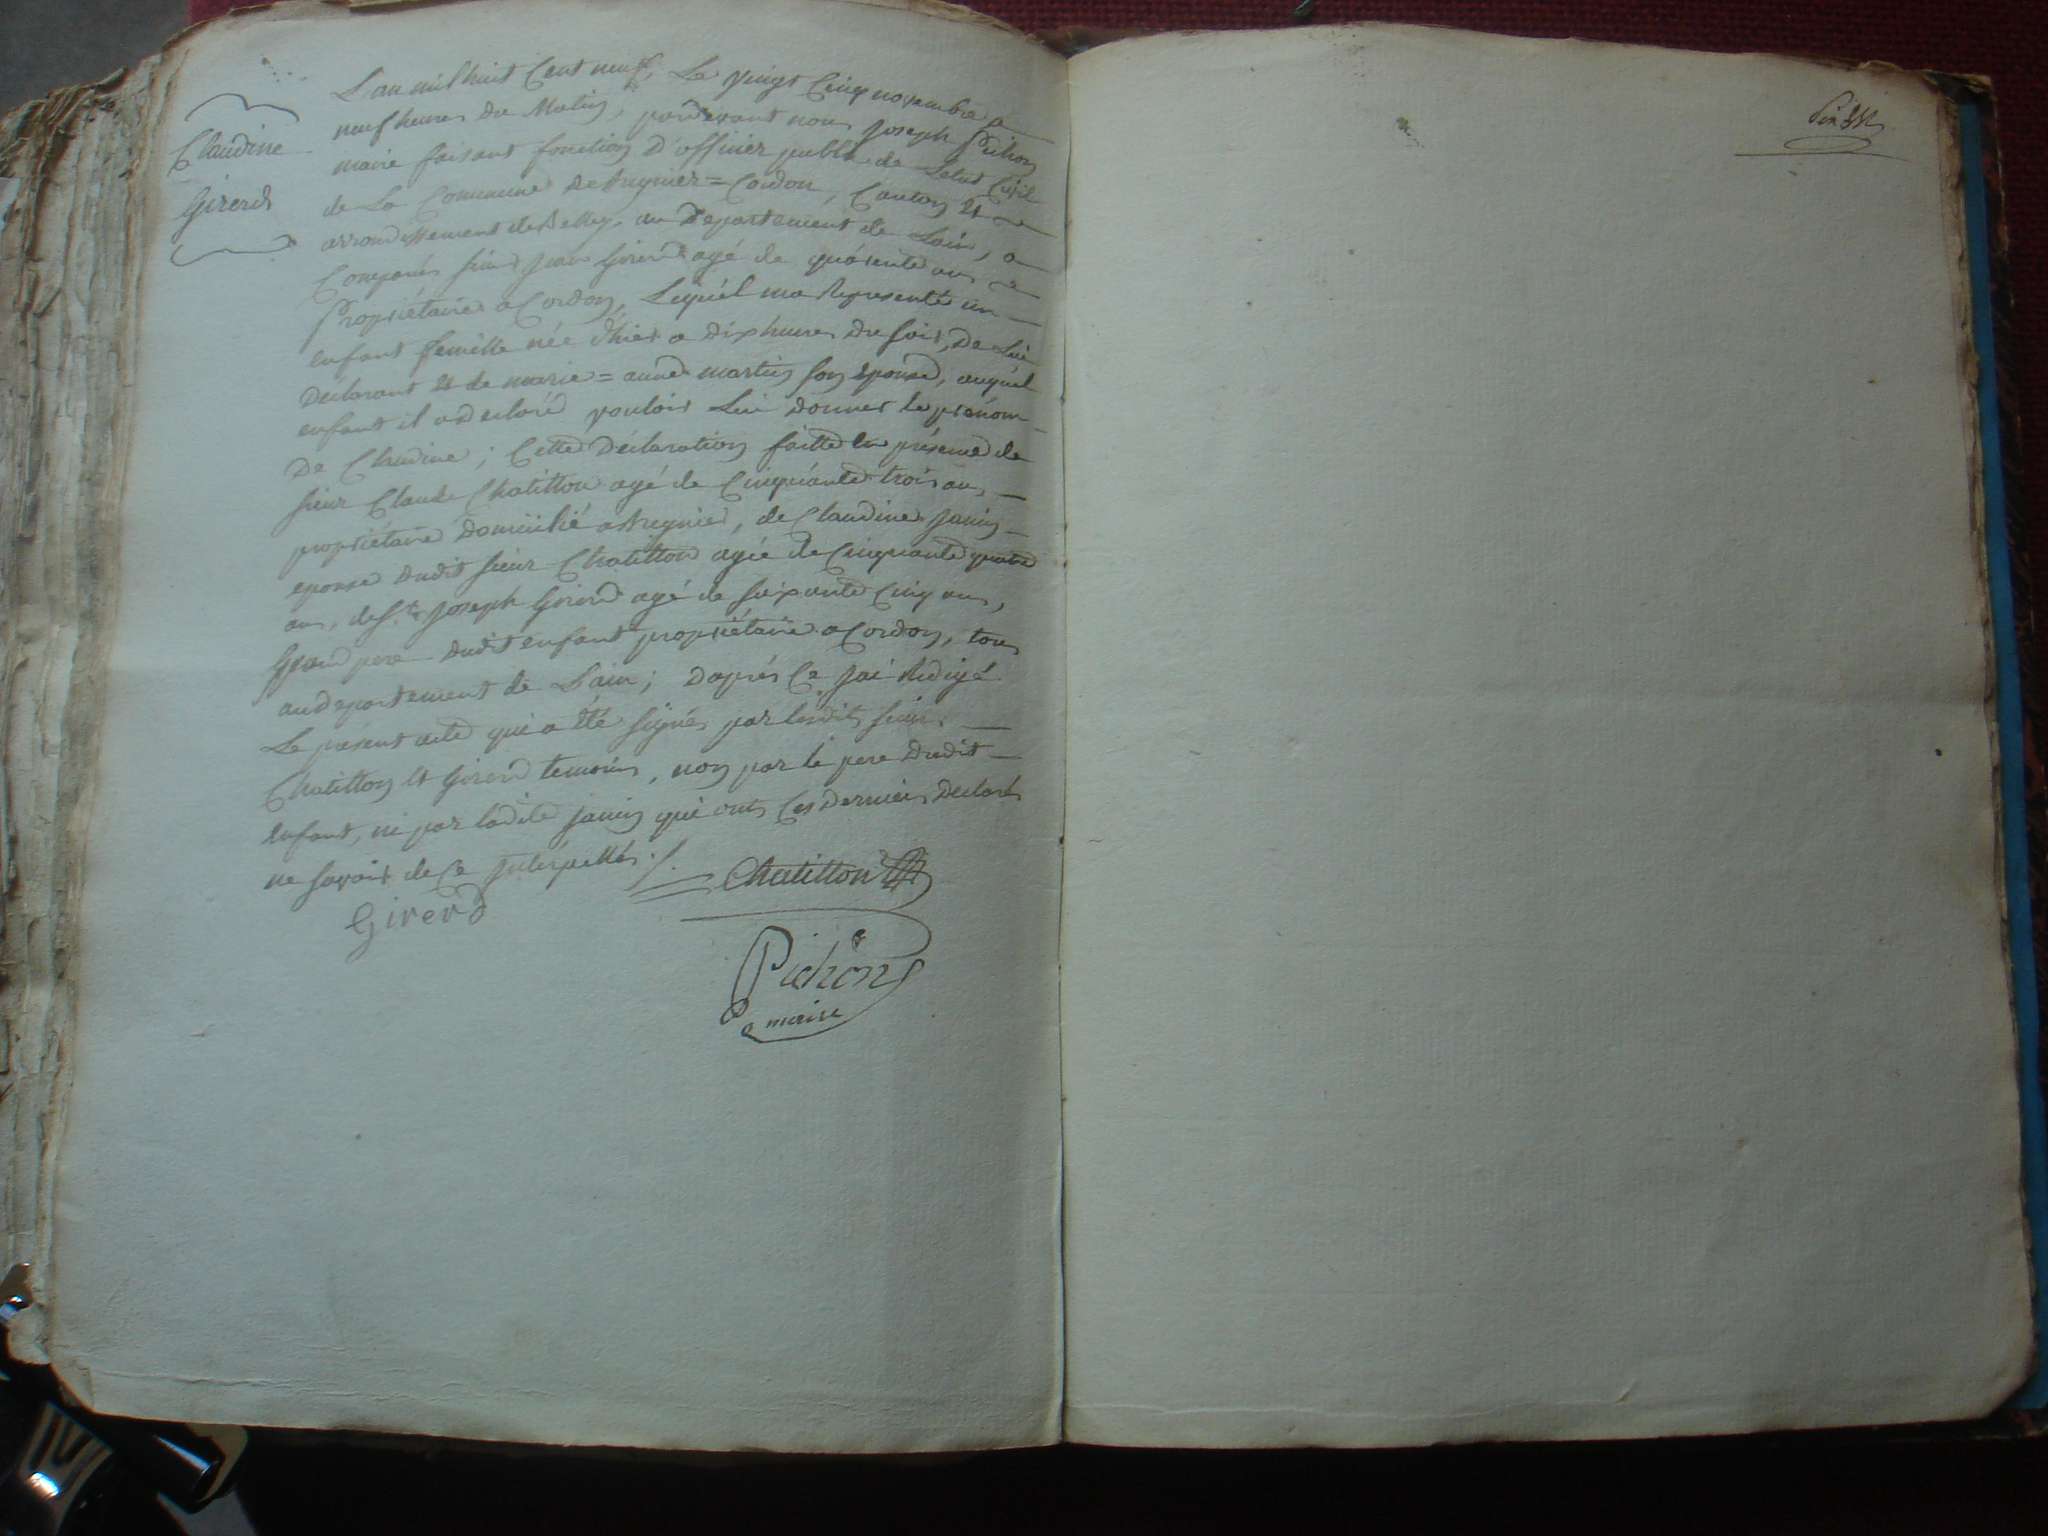 Claudine
Girerd
L'an mil huit Cent neuf, Le vingt Cinq novembre a
neuf heures du Matin, pardevant nous Joseph Pichon
maire faisant fonction D'officier public de Letat Civil
de La Commune De Bregnier=Cordon, Canton et
arrondissement de Belley, au Departement de Lain, a
Comparu sieur Jean Girerd agé de quarente ans
Propriétaire a Cordon, Lequel ma Representé un
enfant femelle née d'hier a dix heures du soir, De Lui
Déclarant et de marie=anne martin son Epouse, auquel
enfant il a declaré vouloir Lui donner le prénom
De Claudine ; Cette Déclaration faitte en présence de
sieur Claude Chatitton agé de Cinquante trois ans,
propriétaire Domicilié a Bregnier, de Claudine Janin
epouse dudit sieur Chatitton agée de Cinquante quatre
ans, de Sr. Joseph Girerd agé de soixante Cinq ans,
Grand pere dudit enfant propriétaire a Cordon, tous
au departement de L'ain ; D'aprés Ce Jai Rédigé
Le présent acte qui a été signés par lesdits sieurs
Chatitton et Girerd temoins, non par le pere Dudit
enfant, ni par ladite Janin qui ont Ces Derniers Declaré
ne savoir de Ce Interpellés ./.
Chatitton
Girerd
Pichon
maire